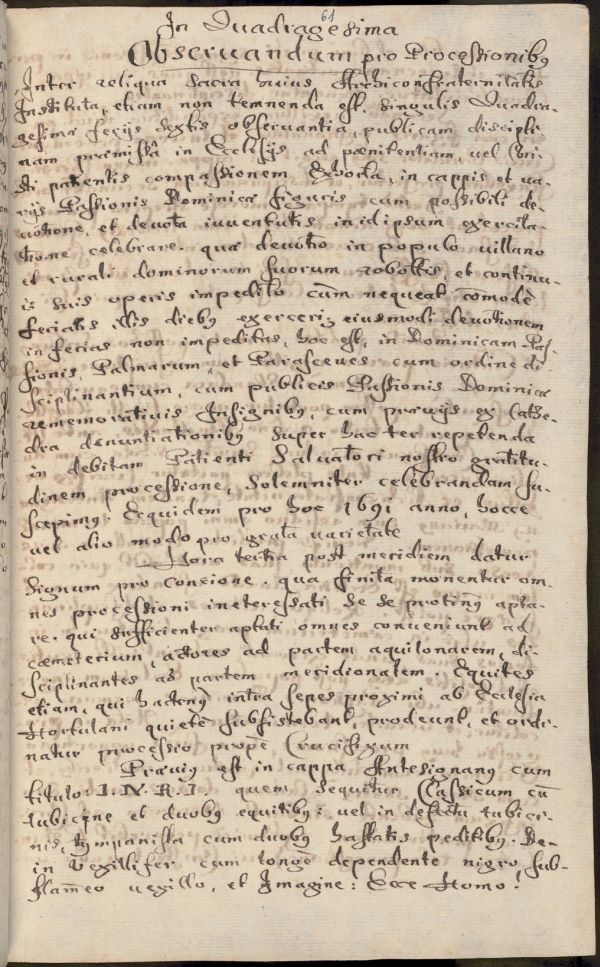 61
In Quadragesima
Observandum pro Processionibq
Inter reliqua Sacra huius Archiconfraternitatis
Instituta, etiam non temnenda est, Singulis Quadra-
gesimæ ferijs Sextis observantia, publicam discipli-
nam præmissâ in Ecclesijs ad pœnitentiam, vel Chri-
sti patientis compassionem Exhorta, in cappis et va-
rijs Passionis Dominicæ figuris cum possibili de-
votione, et devota iuventutis in idipsum exercita-
tione celebrare. quæ devotio in populo villano
et rurali dominorum suorum robottis, et continu-
is suis operis impedito cùm nequeat com̄odè
ferialis illis diebq exerceri, eiusmodi devotionem
in ferias non impeditas, hoc est, in Dominicam Pas-
sionis, Palmarum, et Parasceves cum ordine di-
sciplinantium, cum publicis Passionis Dominicæ
rememorativis Insignibq, cum prævijs ex Cathe-
dra denuntiationibq super hac ter repetenda
in debitam Patienti Salvatori nostro gratitu-
dinem processione, Solemniter celebrandam su-
scepimq. Equidem pro hoc 1691 anno, hocce
vel alio modo pro grata varietate
Hora tertia post meridiem datur
Signum pro Concione. qua finita monentur om-
nes processioni interessati se se protinq apta-
re. qui sufficienter aptati omnes conveniunt ad
cœmeterium, actores ad partem aquilonarem, di-
sciplinantes ad partem meridionalem. Equites
etiam, qui hactenq intra sepes proximi ab Ecclesia
Hortulani quietè subsistebant, prodeunt, et ordi-
natur processio propè Crucifixum
Præviq est in cappa Antesignanq cum
titulo: I. N. R. I. quem sequitur Classicum cū
tubicine et duobq equitibq: vel in defectu tubici-
nis, tympanista cum duobq hastatis peditibq. De-
in Vexillifer cum longè dependente nigro sub-
flam̄eo vexillo, et Imagine: Ecce Homo!